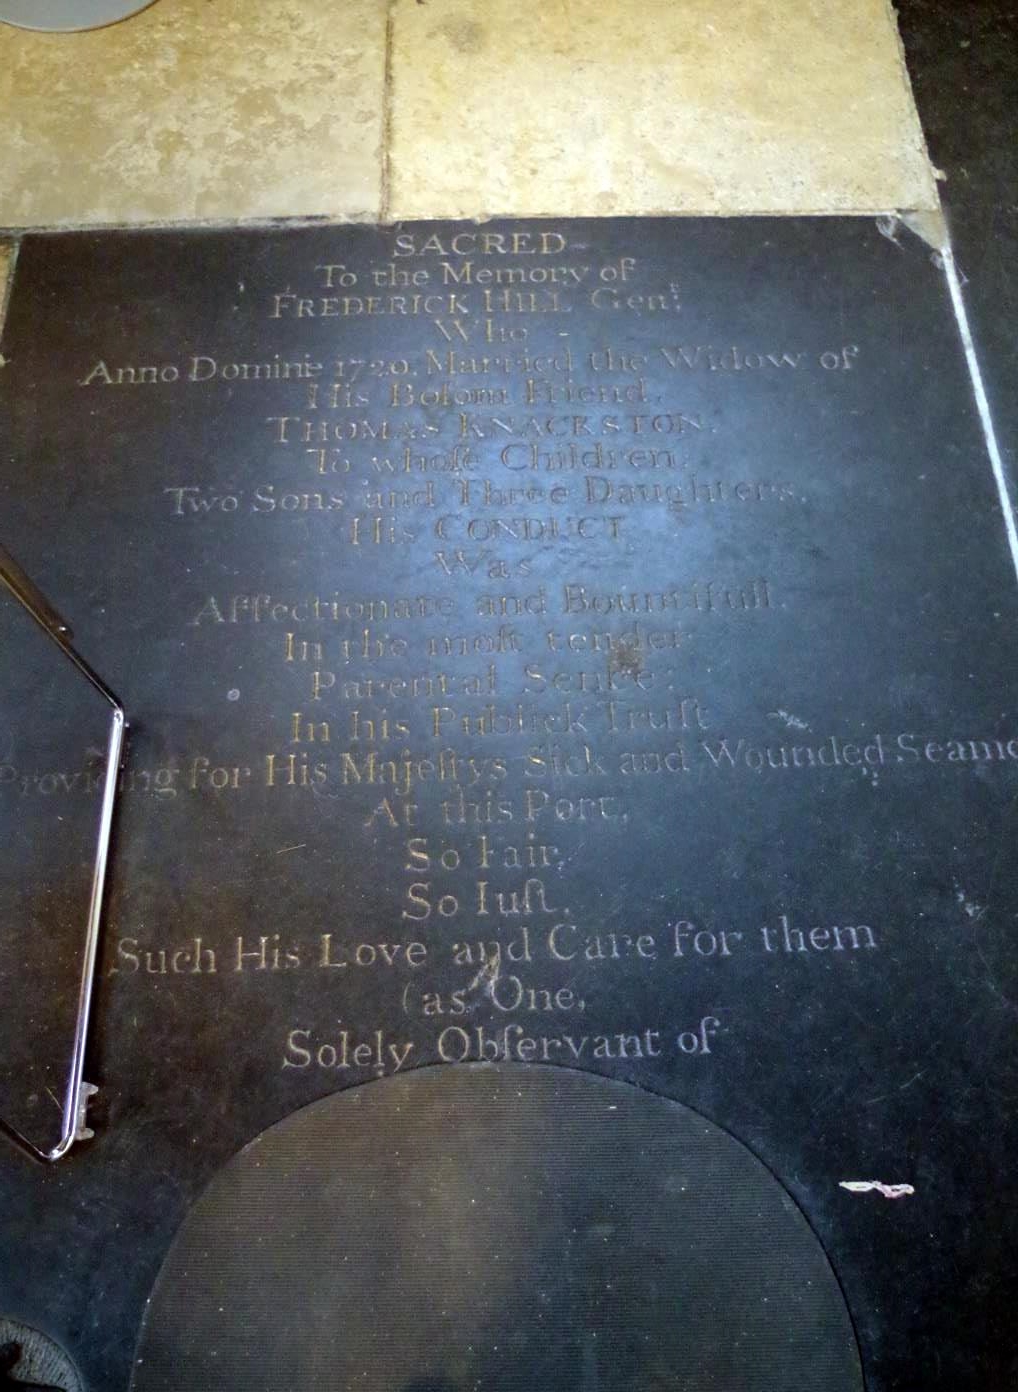 SACRED
To the Memory of
FREDERICK HILL Genᵗ:
Who -
Anno Domini 1720. Married the Widow of
His Boſom Friend.
THOMAS KNACKSTON.
To whoſe Children.
Two Sons and Three Daughters.
His CONDUCT
Was
Affectionate and Bountifull.
In the moſt tender
Parental Senſe:
In his Publick Truſt
Providing for His Majeſtys Sick and Wounded
At this Port.
So Fair.
So Iuſt.
Such His Love and Care for them
(as One,
Solely Obſervant of